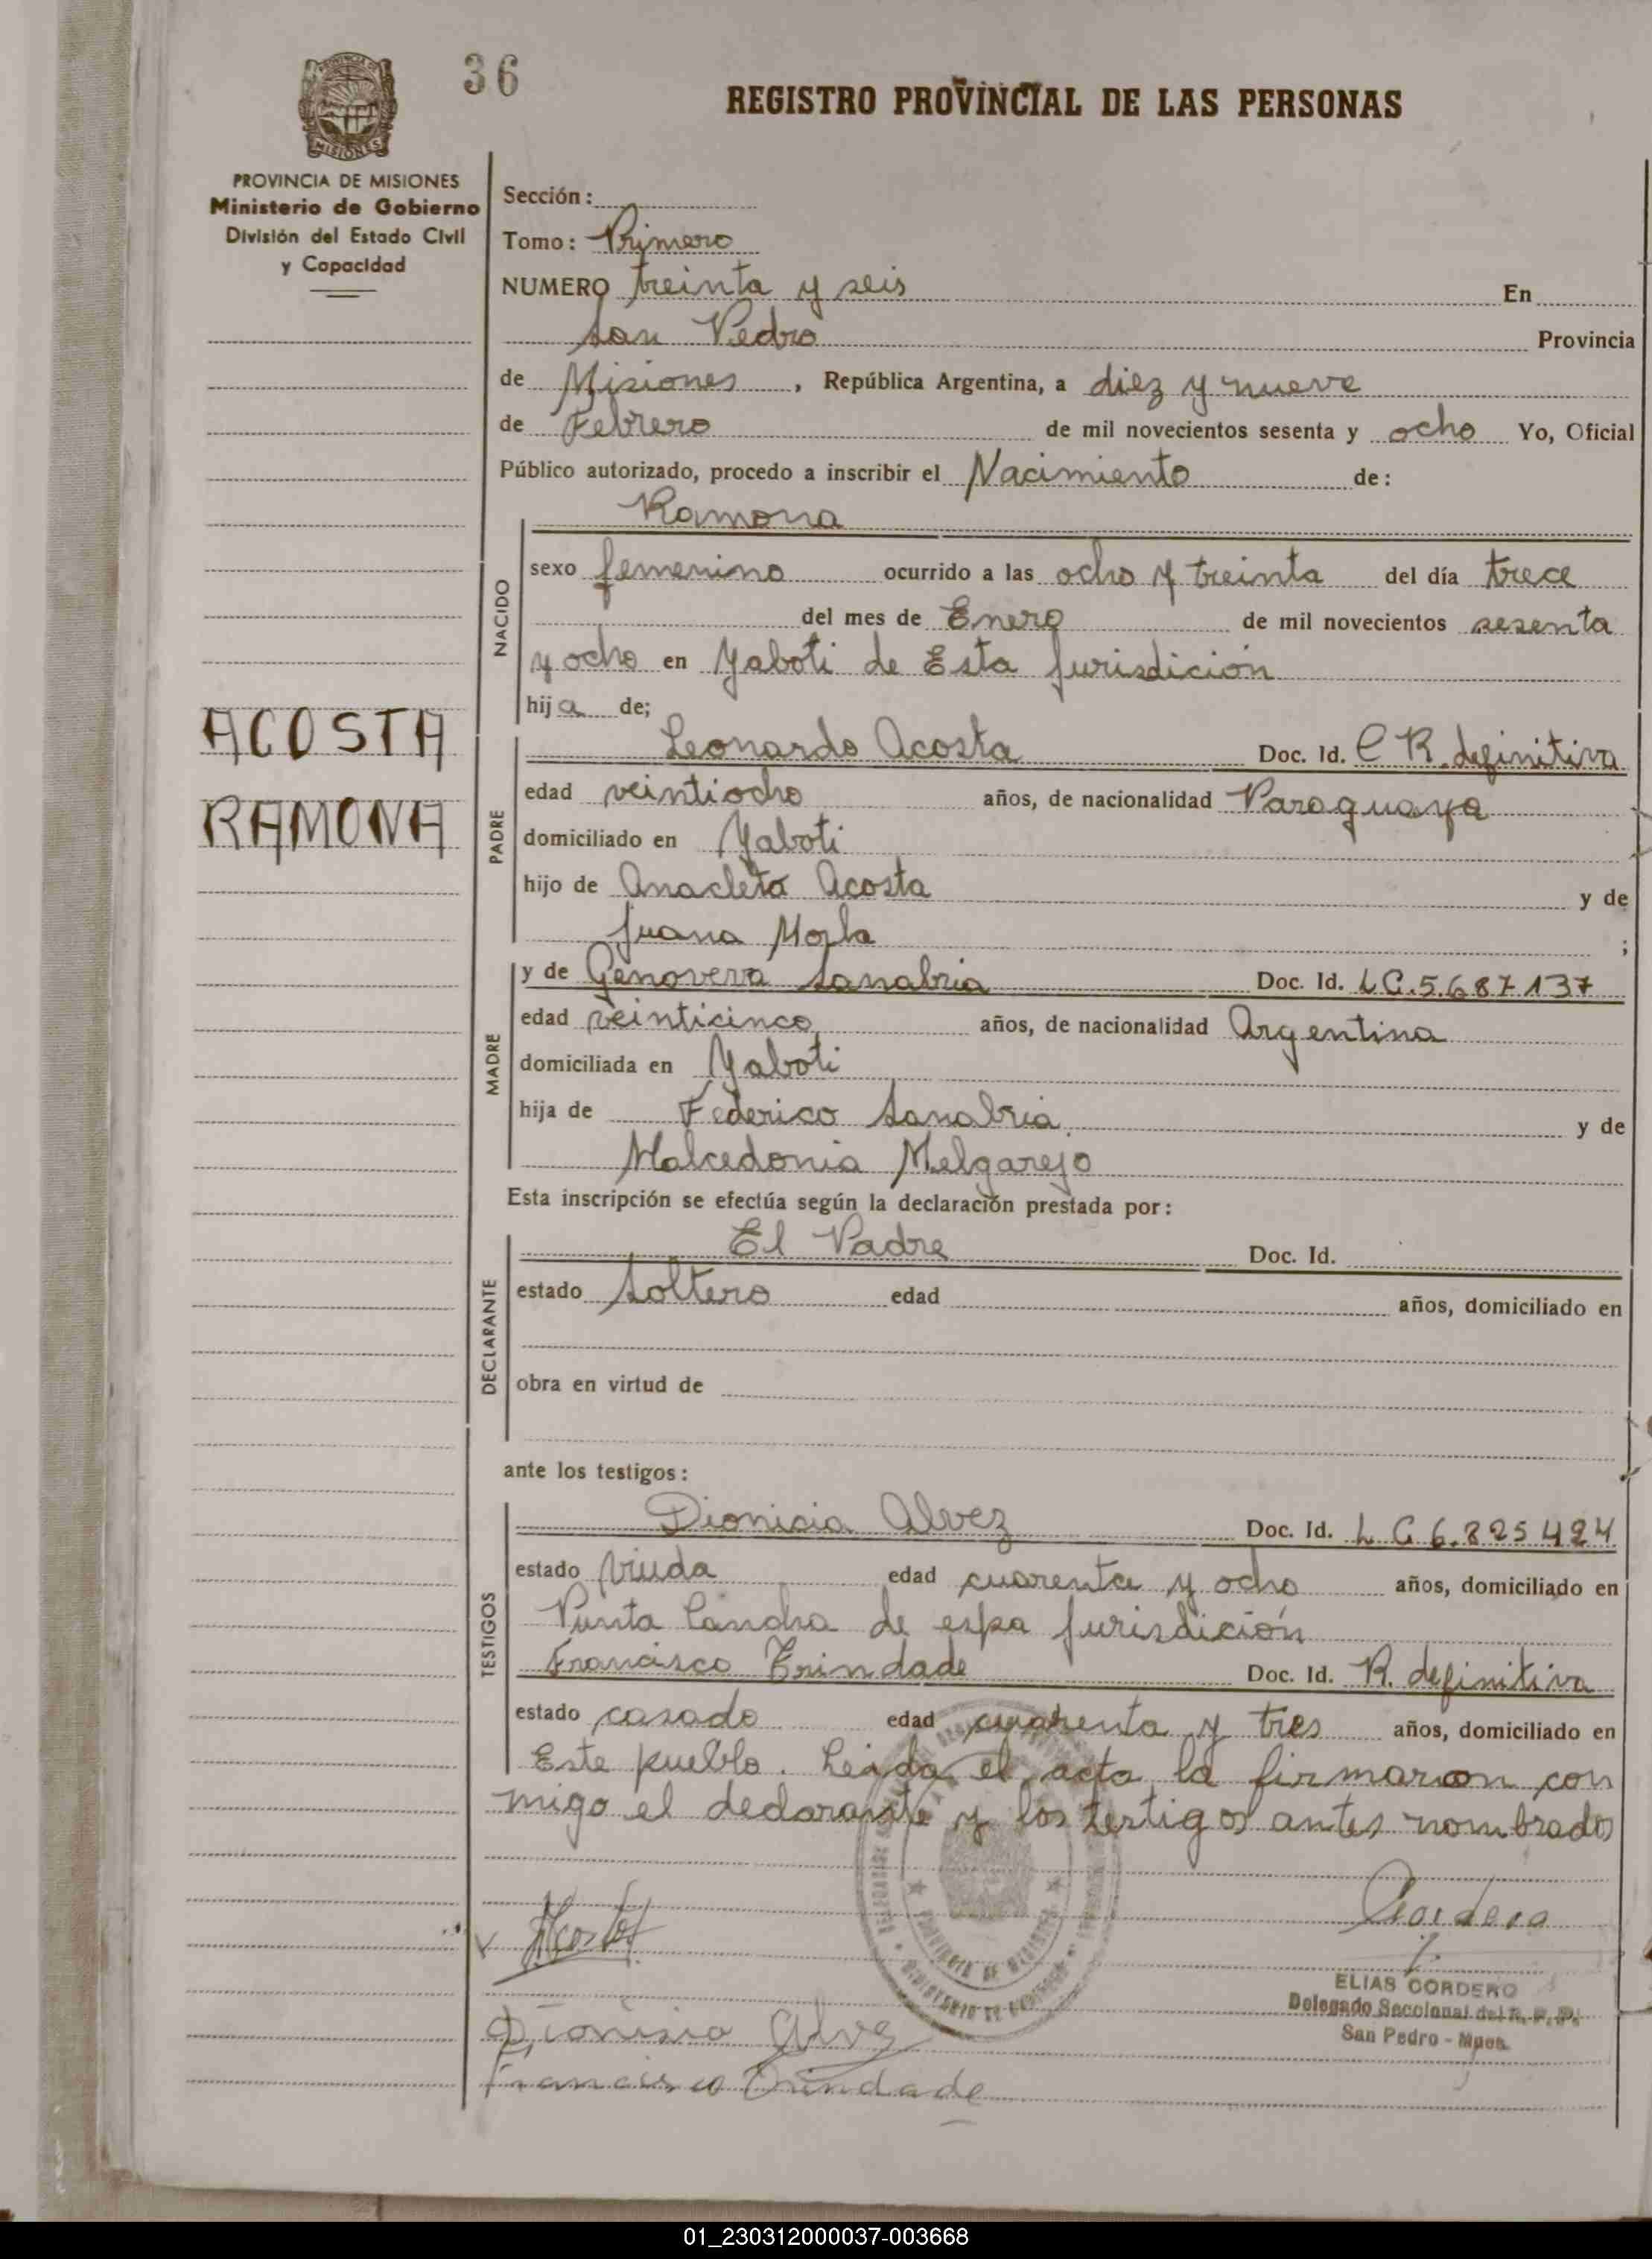 36
REGISTRO PROVINCIAL DE LAS PERSONAS
MISIONES
PROVINCIA DE MISIONES
Ministerio de Gobierno
División del Estado Civil
y Capacidad
Sección:
Tomo: Primero
NUMERO treinta y seis En
San Pedro Provincia
de Misiones, República Argentina, a diez y nueve
de Febrero de mil novecientos sesenta y ocho Yo, Oficial
Público autorizado, procedo a inscribir el Nacimiento de:
Ramona
NACIDO
sexo femenino ocurrido a las ocho y treinta del día trece
del mes de Enero de mil novecientos sesenta
y ocho en Yaboti de Esta Jurisdición
hija de;
ACOSTA
RAMONA
PADRE
Leonardo Acosta Doc. Id. C R. definitiva
edad veintiocho años, de nacionalidad Paraguaya
domiciliado en Yaboti
hijo de Anacleto Acosta y de
Juana ;
MADRE
y de Genoveva Sanabria Doc. Id. L C. 5.687137
edad veinticinco años, de nacionalidad Argentina
domiciliada en Yaboti
hija de Federico Sanabria y de
Malcedonia Melgarejo
Esta inscripción se efectúa según la declaración prestada por:
DECLARANTE
El Padre Doc. Id.
estado Soltero edad años, domiciliado en
obra en virtud de
ante los testigos:
TESTIGOS
Dionicia Alvez Doc. Id. L C 6.825424
estado viuda edad cuarenta y ocho años, domiciliado en
Punta Cancha de Jurisdición
Francisco Trindade Doc. Id. R. definitiva
estado casado edad cuarenta y tres años, domiciliado en
Este pueblo. Leida el acta la firmaron con
migo el declarante y los testigos antes nombrados
Acosta
Cordero
ELIAS CORDERO
Delegado Seccional del R. P. P.
San Pedro - Mnes.
PROVINCIA DE MISIONES
MINISTERIO DE GOBIERNO
Dionisia Alvez
Francisco Trindade
01_230312000037-003668